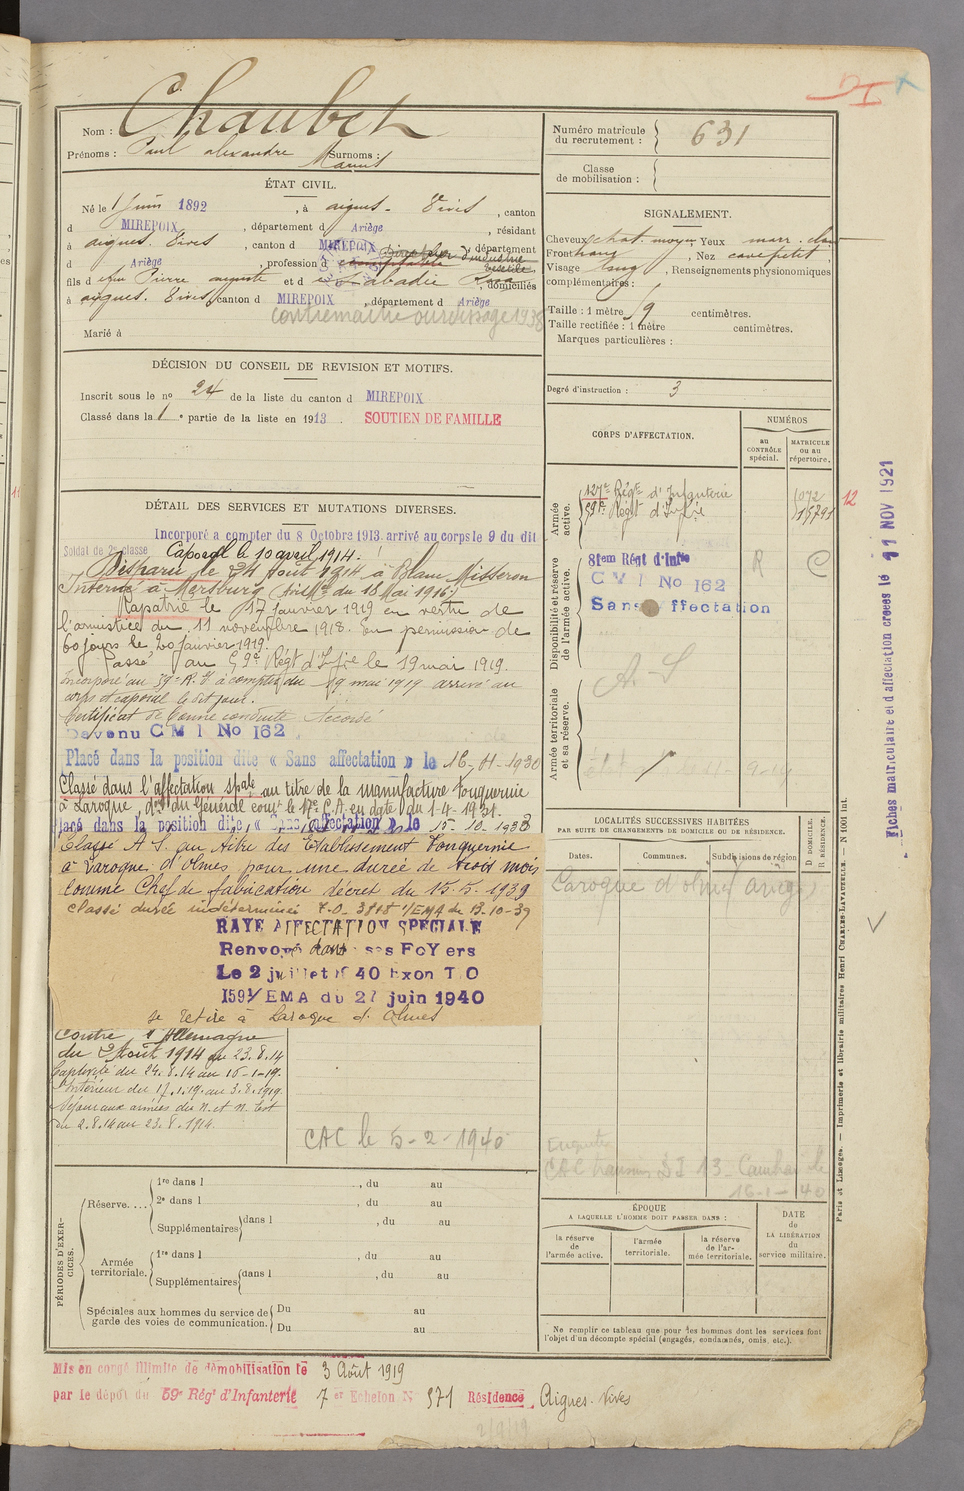 Nom : Chaubet
Prénoms : Paul alexandre Surnoms :
ÉTAT CIVIL.
Né le 1 Juin 1892, à aigues-Vives, canton
d MIREPOIX, département d Ariège, résidant
à aigues-Vives, canton d MIREPOIX, département
d Ariège, profession d comptable Directeur d'industrie textile
fils d Pierre auguste et d Labadie Rosa, domiciliés
à aigues-Vives, canton d MIREPOIX, département d Ariège
contremaitre ourdissage 1938
Marié à
DÉCISION DU CONSEIL DE REVISION ET MOTIFS.
Inscrit sous le no 24 de la liste du canton d MIREPOIX
Classé dans la 1e partie de la liste en 1913. SOUTIEN DE FAMILLE
DÉTAIL DES SERVICES ET MUTATIONS DIVERSES.
Incorporé a compter du 8 Octobre 1913. arrivé au corps le 9 du dit
Soldat de 2e classe Caporal le 10 avril 1914.
Disparu le 24 Août 1914 à Blanc Misseron
Interné à Mersburg (avis du 18 Mai 1916)
Rapatrié le 17 Janvier 1919 en vertu de
l'armistice du 11 novembre 1918. En permission de
60 jours le 20 Janvier 1919.
Passé au 59e Régt d'Infie le 19 mai 1919.
Incorporé au 59e R.I. à compter du 19 mai 1919 arrivé au
corps et caporal le dit jour.
Certificat de bonne conduite Accordé
Devenu C M I No 162
Placé dans la position dite « Sans affectation » le 16-11-1930
Classé dans l'affectation spale au titre de la manufacture Fonquernie
à Laroque, don du Général comt le 17e C.A. en date du 1-4-1931.
lacé dans la position dite « Sans affectation » le 15-10-1933
Classé A S au titre des Etablissement Fonquernie
à Laroque d'olmes pour une durée de trois mois
comme Chef de fabrication décret du 15.5.1939
classé durée indéterminée 7.0_3818 1/EMA du 13-10-39
RAYE AFFECTATION SPECIALE
Renvoyé dans ses FoYers
Le 2 juillet 1940 Exon T.O
1591/EMA du 27 juin 1940
se retire à Laroque d'Olmes
Contre l'Allemagne
du 2 Août 1914 au 23.8.14
Captivité du 24.8.14 au 16-1-19.
Intérieur du 17.1.19. au 3.8.1919
Séjour aux armées du N. et N. Est
du 2.8.14 au 23.8.1914.
CAC le 5-2-1940
PÉRIODES D'EXERCICES.
Réserve....
1re dans l , du au
2e dans l , du au
Supplémentaires dans l , du au
Armée territoriale.
1re dans l , du au
Supplémentaires dans l , du au
Spéciales aux hommes du service de garde des voies de communication.
Du au
Du au
Mis en congé illimité de démobilisation le 3 Août 1919
par le dépôt du 59e Régt d'Infanterie 7e Echelon N 571 Résidence Aigues-Vives
Numéro matricule du recrutement : 631
Classe de mobilisation :
SIGNALEMENT.
Cheveux chat. moyen Yeux marr. clair
Front , Nez cave petit
Visage long, Renseignements physionomiques
complémentaires :
Taille : 1 mètre 59 centimètres.
Taille rectifiée : 1 mètre centimètres.
Marques particulières :
Degré d'instruction : 3
CORPS D'AFFECTATION.
NUMÉROS
au CONTRÔLE spécial.
MATRICULE ou au répertoire.
Armée active.
127e Régt d'Infanterie
59e Régt d'Infie
12
Disponibilité et réserve de l'armée active.
81em Régt d'Infie R C
C M I No 162
Sans affectation
Armée territoriale et sa réserve.
A. S
LOCALITÉS SUCCESSIVES HABITÉES
PAR SUITE DE CHANGEMENTS DE DOMICILE OU DE RÉSIDENCE.
Dates.
Communes.
Subdivisions de région
D DOMICILE.
R RÉSIDENCE.
Laroque d'olmes (ariège)
Enquête
CAC transmis
16-1-40
ÉPOQUE
A LAQUELLE L'HOMME DOIT PASSER DANS :
la réserve de l'armée active.
l'armée territoriale.
la réserve de l'armée territoriale.
DATE de LA LIBÉRATION du service militaire.
Ne remplir ce tableau que pour les hommes dont les services font
l'objet d'un décompte spécial (engagés, condamnés, omis, etc.).
Paris et Limoges. — Imprimerie et librairie militaires Henri CHARLES-LAVAUZELLE. — N 1051 int.
Fiches matriculaire et d'affectation créées le 11 NOV 1921